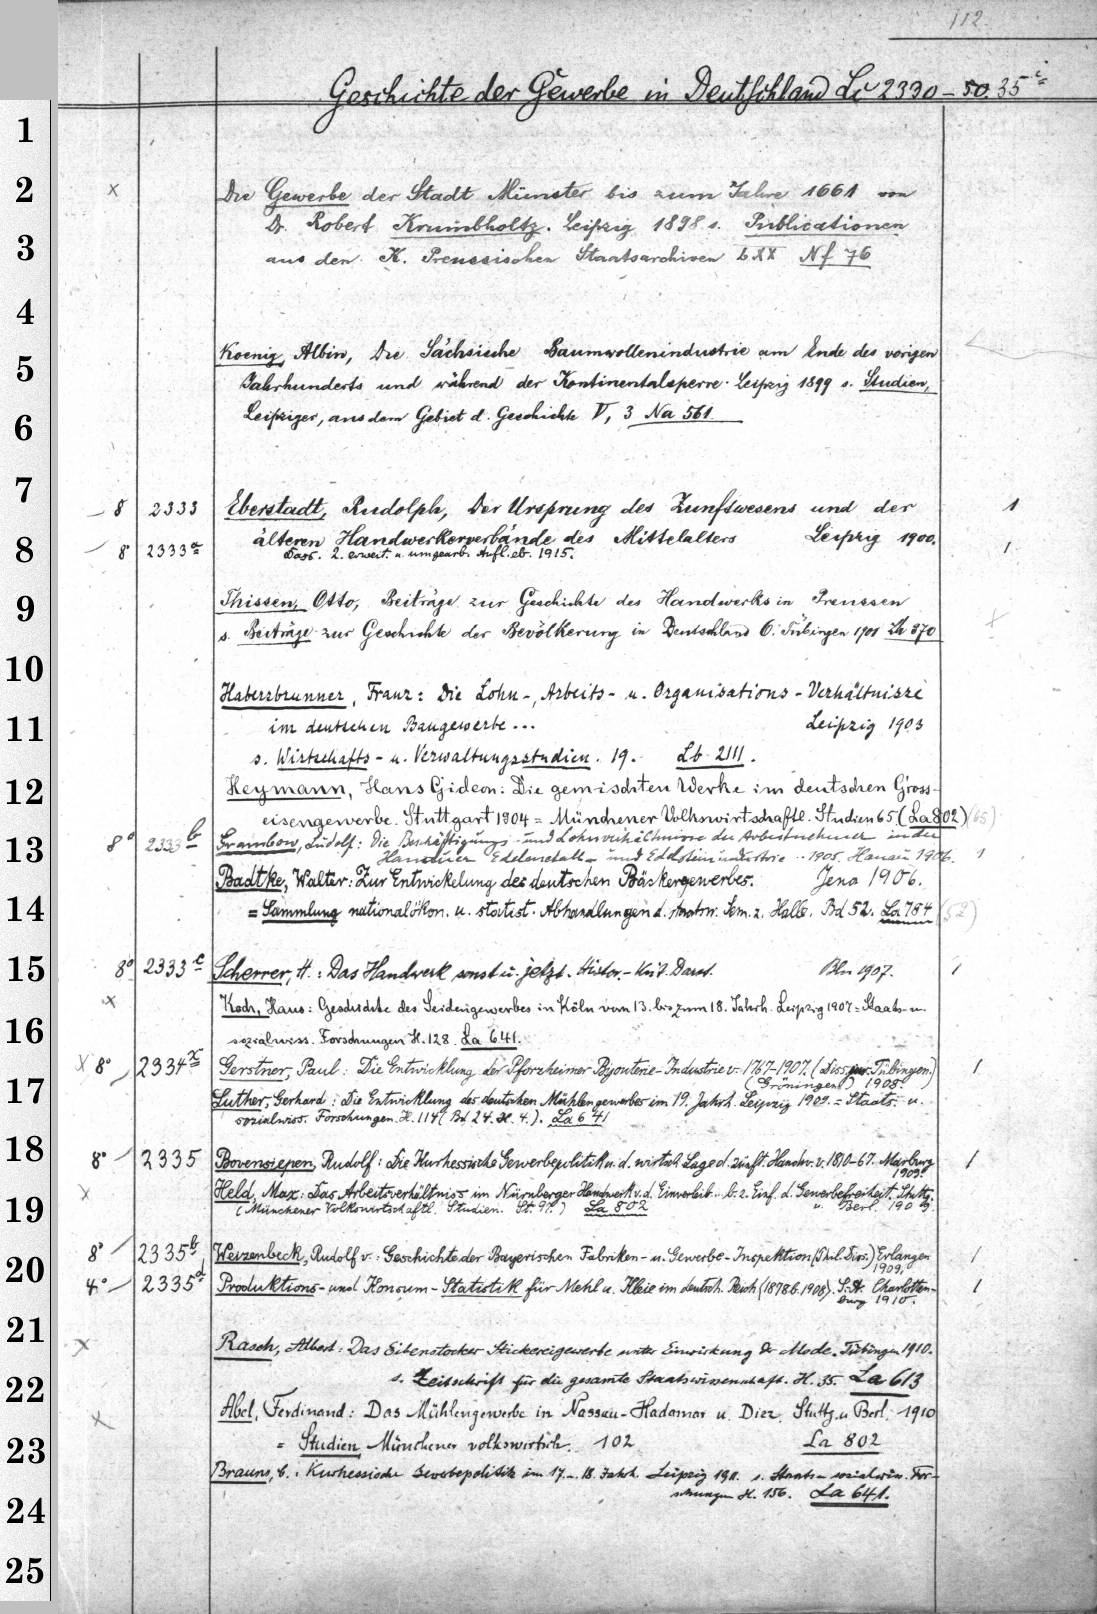 112.
Geschichte der Gewerbe in Deutschland Lc 2330-50.35
1
2
3
4
5
6
7
8
9
10
11
12
13
14
15
16
17
18
19
20
21
22
23
24
25
x Die Gewerbe der Stadt Münster bis zum Jahre 1661 von
Dr. Robert Krumbholtz. Leipzig 1898 s. Publicationen
aus den K. Preussischen Staatsarchiven LXX Nf 76
Koenig, Albin, Die Sächsische Baumwollenindustrie am Ende des vorigen
Jahrhunderts und während der Kontinentalsperre. Leipzig 1899 s. Studien,
Leipziger, aus dem Gebiet d. Geschichte V, 3 Na 561
8 2333 Eberstadt, Rudolph, Der Ursprung des Zunftwesens und der 1
älteren Handwerkerverbände des Mittelalters Leipzig 1900.
8 2333a Dass. 2. erweit. u. umgearb. Aufl. eb. 1915. 1
Thissen, Otto, Beiträge zur Geschichte des Handwerks in Preussen
s. Beiträge zur Geschichte der Bevölkerung in Deutschland 6. Tübingen 1901 Lh 370 x
Haberzbrunner, Franz: Die Lohn-, Arbeits- u. Organisations-Verhältnisse
im deutschen Baugewerbe... Leipzig 1903
s. Wirtschafts- u. Verwaltungsstudien. 19. Lb 2111.
Heymann, Hans Gideon: Die gemischten Werke im deutschen Gross-
eisengewerbe. Stuttgart 1904 = Münchener Volkswirtschaftl. Studien 65 (La 802) (65)
8° 2333b Grambow, Ludolf: Die Beschäftigungs- und Lohnverhältnisse der Arbeitnehmer in der
Hanauer Edelmetall- und Edelsteinindustrie .. 1905. Hanau 1906. 1
Badtke, Walter: Zur Entwickelung des deutschen Bäckergewerbes. Jena 1906.
= Sammlung nationalökon. u. statist. Abhandlungen d. staatsw. Sem. z. Halle. Bd 52. La 784 (52)
8° 2333c Scherrer, H.: Das Handwerk sonst u. jetzt. Histor.-Krit. Darst. Bln 1907. 1
x Koch, Hans: Geschichte des Seidengewerbes in Köln vom 13. bis zum 18. Jahrh. Leipzig 1907 = Staats- u.
sozialwiss. Forschungen H. 128. La 641.
x 8° 2334x Gerstner, Paul: Die Entwicklung der Pforzheimer Bijouterie-Industrie v. 1767-1907. (Diss. Tübingen.) 1
(Gröningen) 1908.
Luther, Gerhard: Die Entwicklung des deutschen Mühlengewerbes im 19. Jahrh. Leipzig 1909. = Staats- u.
sozialwiss. Forschungen. H. 114 (Bd 24. H. 4.). La 641
8° 2335 Bovensiepen, Rudolf: Die Kurhessische Gewerbepolitik u. d. wirtsch. Lage d. zünft. Handw. v. 1810-67. Marburg 1
1909.
x Held, Max: Das Arbeitsverhältniss im Nürnberger Handwerk v. d. Einverleib. b. z. Einf. d. Gewerbefreiheit. Stuttg.
(Münchener Volkswirtschaftl. Studien. St. 97.) La 802 u. Berl. 1909.
8° 2335b Weizenbeck, Rudolf v.: Geschichte der Bayerischen Fabriken- u. Gewerbe-Inspektion (Phil. Diss.) Erlangen 1
1909.
4° 2335d Produktions- und Konsum-Statistik für Mehl u. Kleie im deutsch. Reich (1878 b. 1908). S.-A. Charlotten- 1
burg 1910.
x Rasch, Albert: Das Eibenstocker Stickereigewerbe unter Einwirkung der Mode. Tübingen 1910.
s. Zeitschrift für die gesamte Staatswissenschaft. H. 35. La 613
x Abel, Ferdinand: Das Mühlengewerbe in Nassau-Hadamar u. Diez. Stuttg. u. Berl. 1910
= Studien, Münchener volkswirtsch. 102 La 802
Brauns, C.: Kurhessische Gewerbepolitik im 17.-18. Jahrh. Leipzig 1911. s. Staats- sozialwiss. For-
schungen H. 156. La 641.